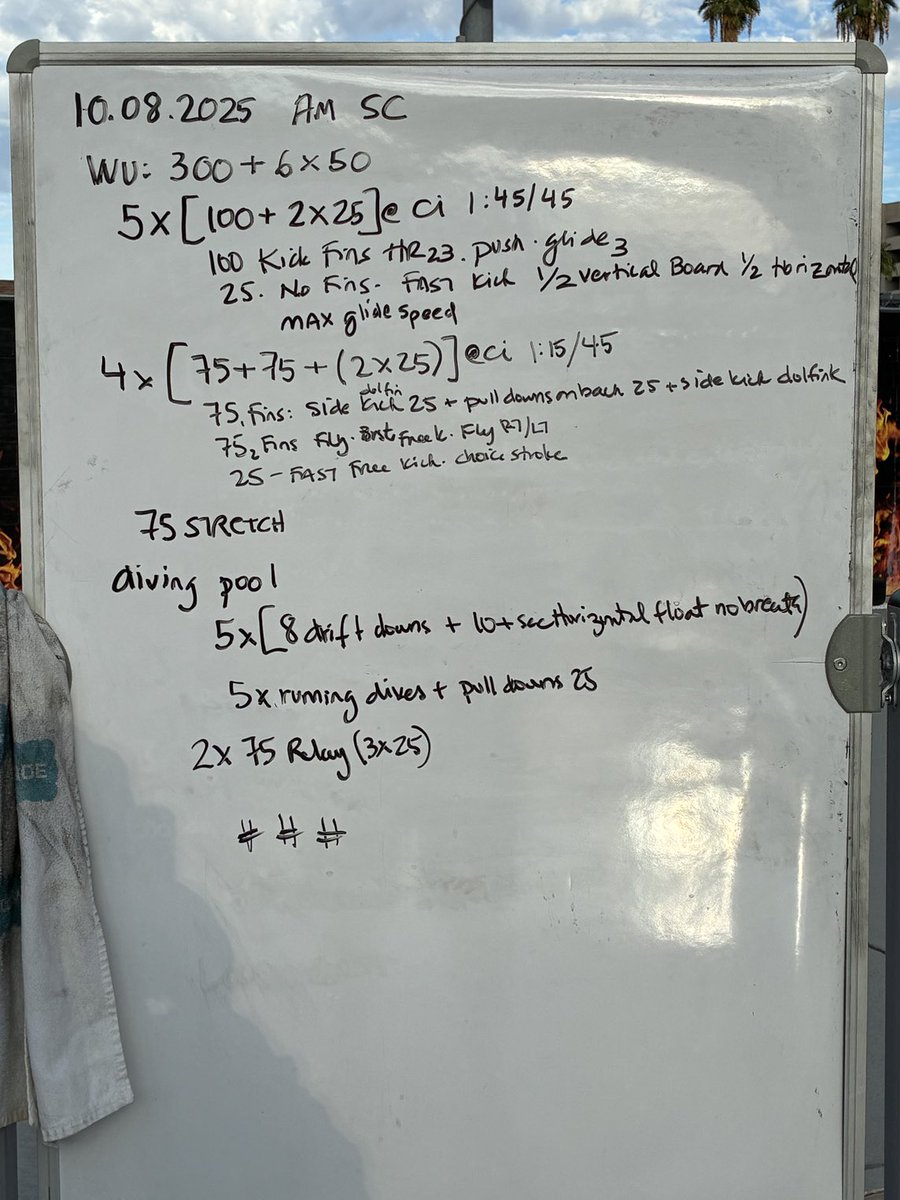 10.08.2025 AM SC
WU: 300 + 6 x 50
5x [100 + 2x25]@ ci 1:45/45
100 Kick Fins HR23. push. glide 3
25. No Fins - FAST Kick 1/2 vertical Board 1/2 Horizontal
MAX glide speed
4x [75+75 + (2x25)]@ci 1:15/45
dolfin
75, Fins: Side Kick 25 + pull downs on back 25 + side kick dolfink
75₂ Fins Fly. Brst Free k. Fly RT/LT
25 - FAST Free Kick. choice stroke
75 STRETCH
diving pool
5x[8 drift downs + 10+ sec Horizontal float no breath)
5x running dives + pull downs 25
2x 75 Relay (3x25)
# # #
DE